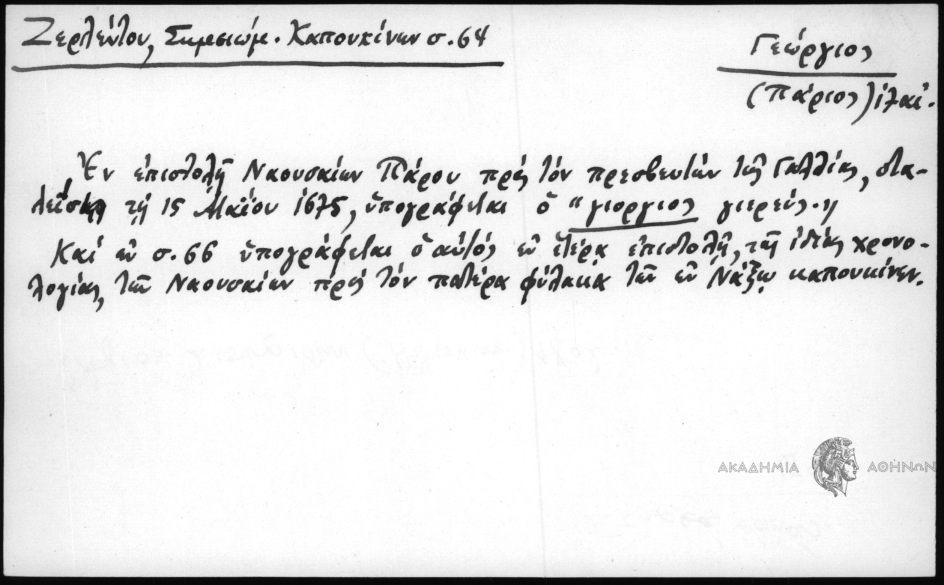 Ζερλέντου, Σημειώμ. Καπουκίνων σ. 64
Γεώργιος
(Πάριος)
Ἐν ἐπιστολῇ Ναουσαίων Πάρου πρὸς τὸν πρεσβευτὴν τῆς Γαλλίας, στα-
λείσῃ τῇ 15 Μαΐου 1675, ὑπογράφεται ὁ "γιοργιος γιερεύς."
Καὶ ἐν σ. 66 ὑπογράφεται ὁ αὐτὸς ἐν ἑτέρᾳ ἐπιστολῇ, τῆς ἰδίας χρονο-
λογίας, τῶν Ναουσαίων πρὸς τὸν πατέρα φύλακα τῶν ἐν Νάξῳ καπουκίνων.
ΑΚΑΔΗΜΙΑ ΑΘΗΝΩΝ